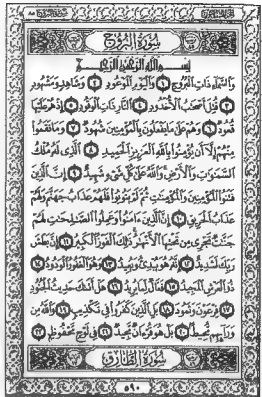 سُورَةُ البُرُوجِ
بِسْمِ اللَّهِ الرَّحْمَٰنِ الرَّحِيمِ
وَالسَّمَاءِ ذَاتِ الْبُرُوجِ ١ وَالْيَوْمِ الْمَوْعُودِ ٢ وَشَاهِدٍ وَمَشْهُودٍ
٣ قُتِلَ أَصْحَابُ الْأُخْدُودِ ٤ النَّارِ ذَاتِ الْوَقُودِ ٥ إِذْ هُمْ عَلَيْهَا
قُعُودٌ ٦ وَهُمْ عَلَىٰ مَا يَفْعَلُونَ بِالْمُؤْمِنِينَ شُهُودٌ ٧ وَمَا نَقَمُوا
مِنْهُمْ إِلَّا أَنْ يُؤْمِنُوا بِاللَّهِ الْعَزِيزِ الْحَمِيدِ ٨ الَّذِي لَهُ مُلْكُ
السَّمَاوَاتِ وَالْأَرْضِ وَاللَّهُ عَلَىٰ كُلِّ شَيْءٍ شَهِيدٌ ٩ إِنَّ الَّذِينَ
فَتَنُوا الْمُؤْمِنِينَ وَالْمُؤْمِنَاتِ ثُمَّ لَمْ يَتُوبُوا فَلَهُمْ عَذَابُ جَهَنَّمَ وَلَهُمْ
عَذَابُ الْحَرِيقِ ١٠ إِنَّ الَّذِينَ آمَنُوا وَعَمِلُوا الصَّالِحَاتِ لَهُمْ
جَنَّاتٌ تَجْرِي مِنْ تَحْتِهَا الْأَنْهَارُ ذَٰلِكَ الْفَوْزُ الْكَبِيرُ ١١ إِنَّ بَطْشَ
رَبِّكَ لَشَدِيدٌ ١٢ إِنَّهُ هُوَ يُبْدِئُ وَيُعِيدُ ١٣ وَهُوَ الْغَفُورُ الْوَدُودُ ١٤
ذُو الْعَرْشِ الْمَجِيدُ ١٥ فَعَّالٌ لِمَا يُرِيدُ ١٦ هَلْ أَتَاكَ حَدِيثُ الْجُنُودِ
١٧ فِرْعَوْنَ وَثَمُودَ ١٨ بَلِ الَّذِينَ كَفَرُوا فِي تَكْذِيبٍ ١٩ وَاللَّهُ مِنْ
وَرَائِهِمْ مُحِيطٌ ٢٠ بَلْ هُوَ قُرْآنٌ مَجِيدٌ ٢١ فِي لَوْحٍ مَحْفُوظٍ ٢٢
سُورَةُ الطَّارِقِ
٥٩٠